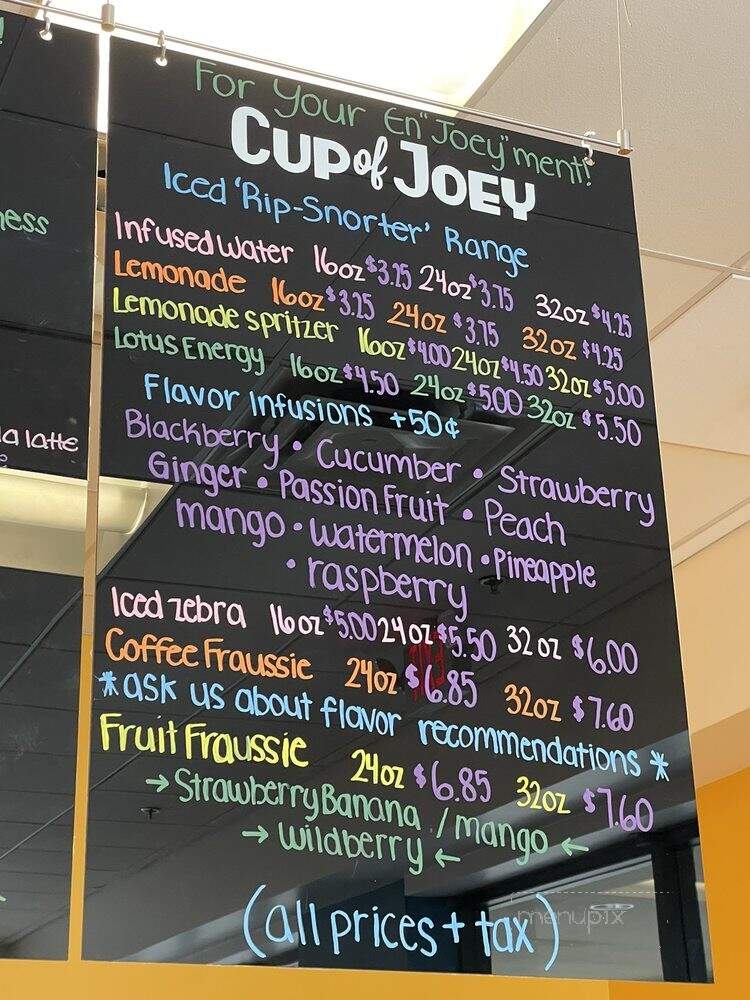 For Your En"Joey"ment!
CUP of JOEY
Iced 'Rip-Snorter' Range
Infused Water 16oz $3.25 24oz $3.75 32oz $4.25
Lemonade 16oz $3.25 24oz $3.75 32oz $4.25
Lemonade Spritzer 16oz $4.00 24oz $4.50 32oz $5.00
Lotus Energy 16oz $4.50 24oz $5.00 32oz $5.50
Flavor Infusions +50¢
Blackberry • Cucumber • Strawberry
Ginger • Passion Fruit • Peach
mango • watermelon • Pineapple
• raspberry
Iced zebra 16oz $5.00 24oz $5.50 32oz $6.00
Coffee Fraussie 24oz $6.85 32oz $7.60
*ask us about flavor recommendations*
Fruit Fraussie 24oz $6.85 32oz $7.60
→ Strawberry Banana / mango ←
→ wildberry ←
(all prices + tax)
ness
a latte
menupix